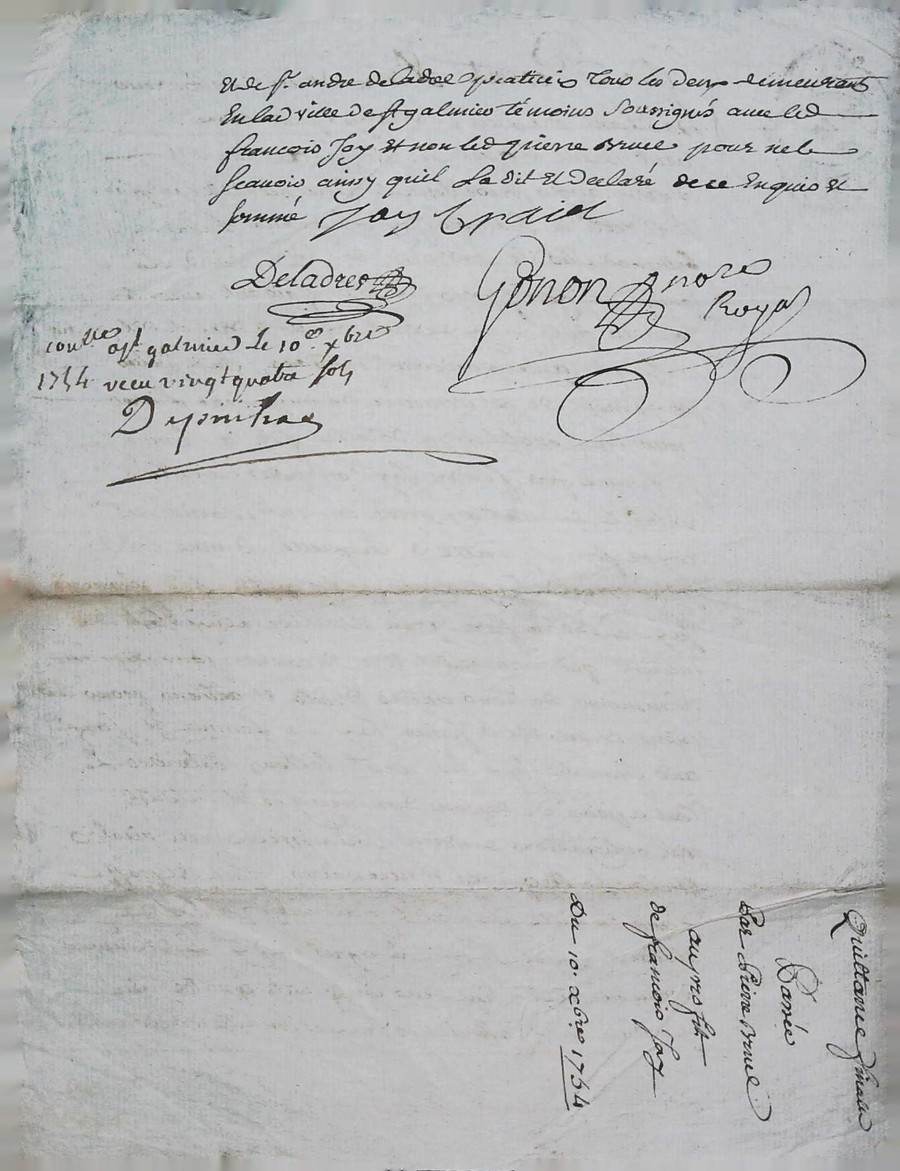 Et de Sr. andre deladret praticien tous les deux demeurant
En lad ville de st galmier témoins soussignés avec led
francois Joy Et non led pierre Bruel pour ne le
scavoir ainsy quil La dit Et declaré de ce Enquis et
sommé Joy
Deladret
Gonon nore
Royal
contlle a st galmier Le 10e xbre
1754 receu vingt quatre sols
Quittance finalle
Passée
Par Pierre Bruel
au proffit
de francois Joy
Du 10 xbre 1754